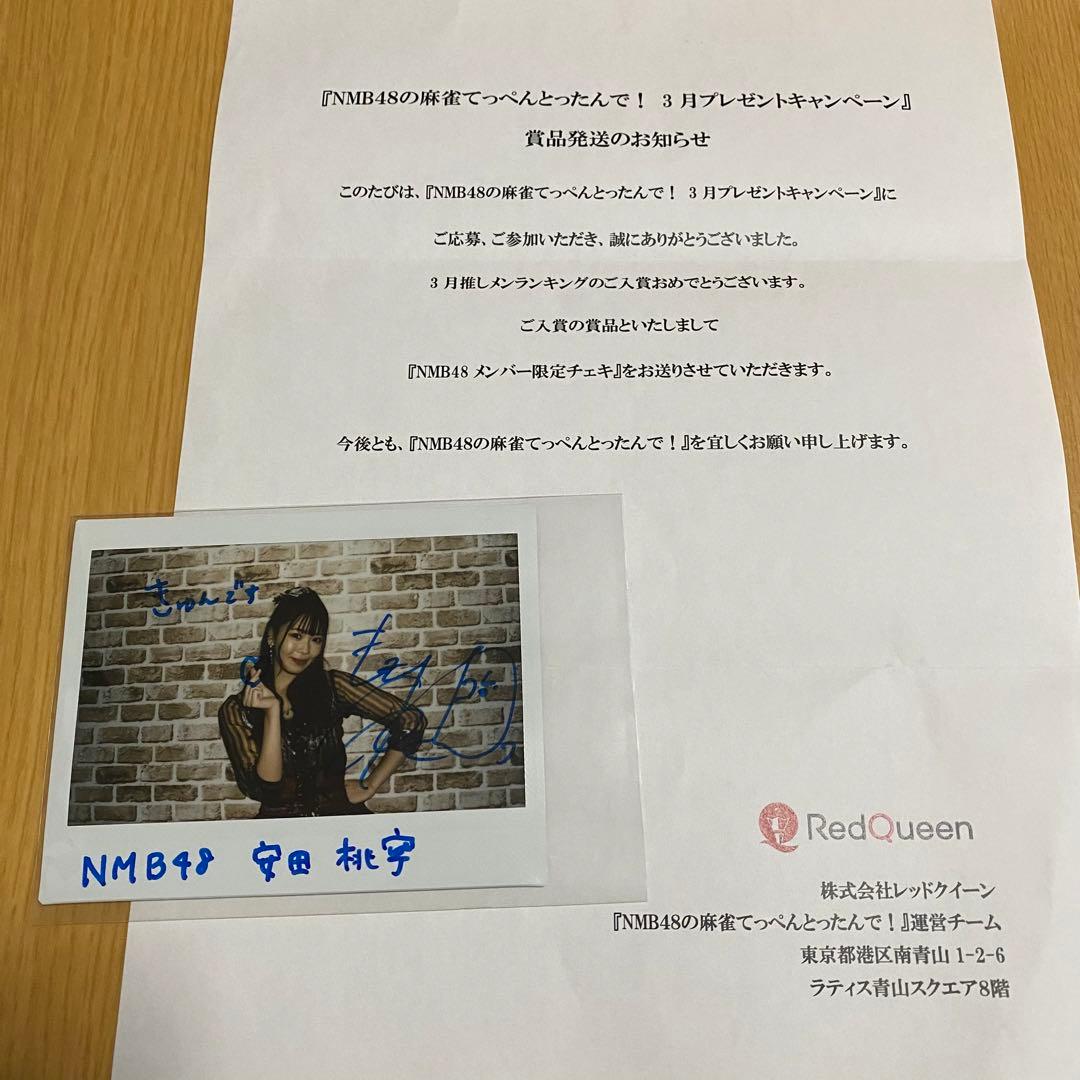 『NMB48の麻雀てっぺんとったんで！ 3月プレゼントキャンペーン』
賞品発送のお知らせ
このたびは、『NMB48の麻雀てっぺんとったんで！ 3月プレゼントキャンペーン』に
ご応募、ご参加いただき、誠にありがとうございました。
3月推しメンランキングのご入賞おめでとうございます。
ご入賞の賞品といたしまして
『NMB48 メンバー限定チェキ』をお送りさせていただきます。
今後とも、『NMB48の麻雀てっぺんとったんで！』を宜しくお願い申し上げます。
きゅんです
NMB48 安田 桃寧
RedQueen
株式会社レッドクイーン
『NMB48の麻雀てっぺんとったんで！』運営チーム
東京都港区南青山 1-2-6
ラティス青山スクエア8階